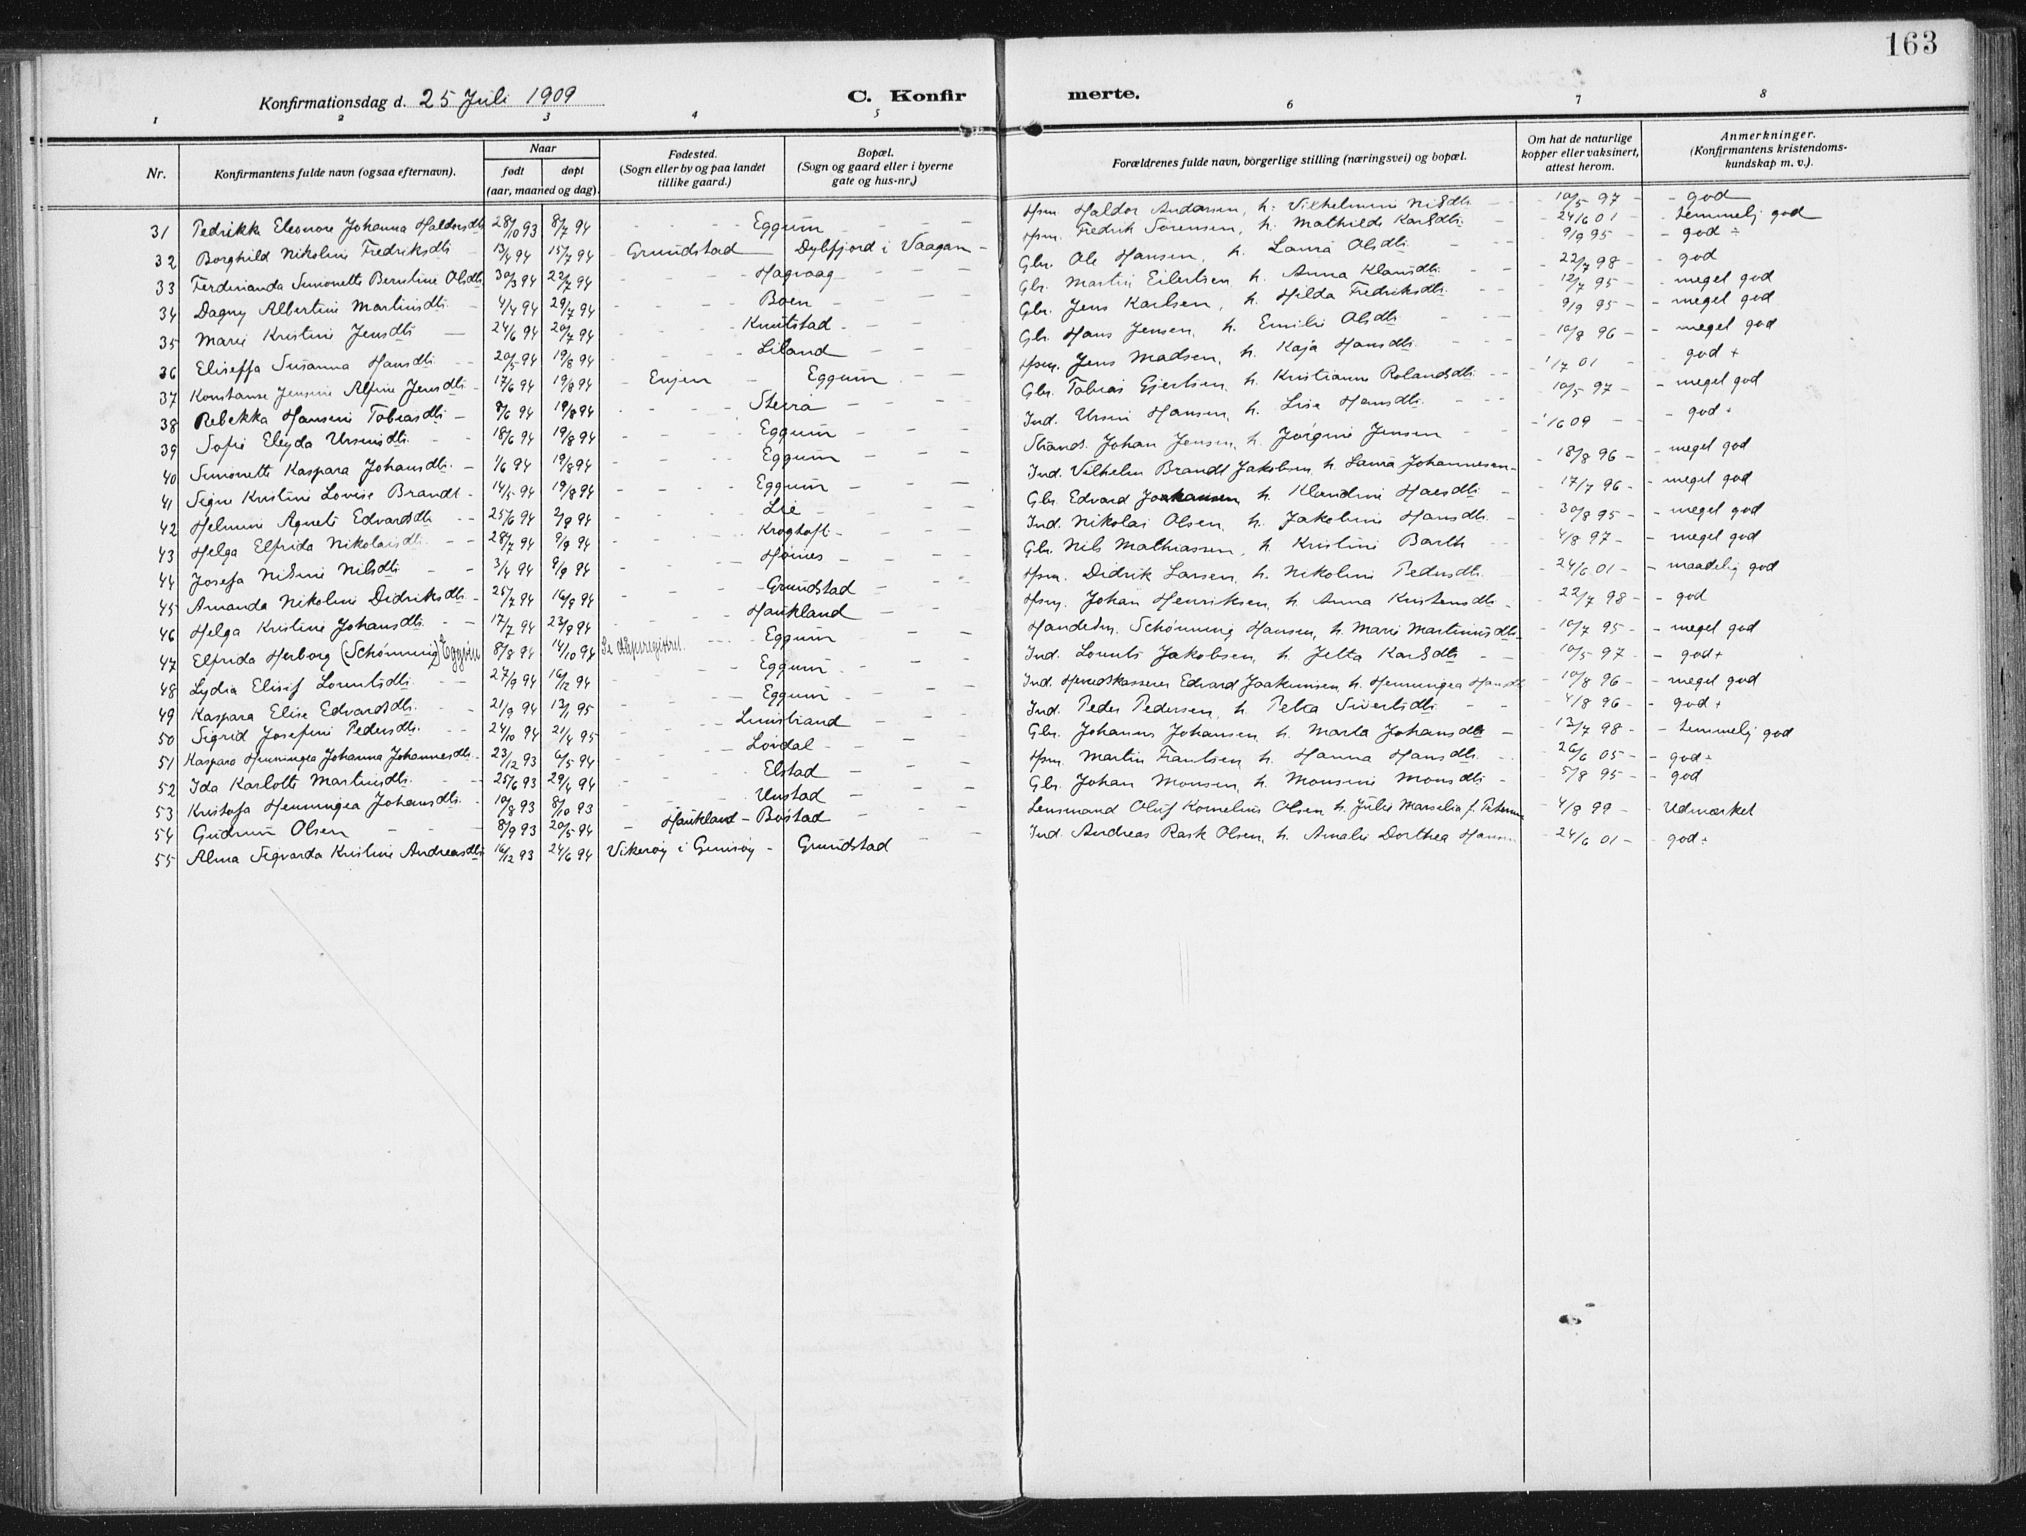 163
Konfirmationsdag d. 25 Juli 1909 C. Konfir merte.
1 2 3 4 5 6 7 8
Nr. Konfirmantens fulde navn (ogsaa efternavn). Naar født døpt (aar, maaned og dag). Fødested. (Sogn eller by og paa landet tillike gaard.) Bopæl. (Sogn og gaard eller i byerne gate og hus-nr.) Forældrenes fulde navn, borgerlige stilling (næringsvei) og bopæl. Om hat de naturlige kopper eller vaksinert, attest herom. Anmerkninger. (Konfirmantens kristendoms-kundskap m. v.).
31 Pedrikk Eleonore Johanna Haldorsdtr 28/10 93 8/7 94 - - Eggum - - Hsm. Haldor Andersen, h. Vilhelmine Nilsdtr. - 10/5 97 - god
32 Borghild Nikoline Fredriksdtr 13/4 94 15/7 94 - Grundstad Dybfjord i Vaagan - Hsm. Fredrik Sørensen, h. Mathilde Karlsdtr. - 24/6 01 - temmelig god
33 Ferdinanda Simonette Berntine Olsdtr 30/3 94 22/7 94 - - - Hagvaag - - - Gbr. Ole Hansen, h. Laura Olsdtr. - - 9/9 95 - god ÷
34 Dagny Albertine Martinsdtr. 4/4 94 29/7 94 - - - Bøen - - - Gbr. Martin Eilertsen h. Anna Klausdtr. - 22/7 98 - god
35 Marie Kristine Jensdtr. 24/6 94 20/7 94 - - - Knutstad - - - Gbr. Jens Karlsen, h. Hilda Fredriksdtr. - - 12/7 95 - meget god
36 Eliseffa Susanna Hansdtr. 20/5 94 19/8 94 - - - Liland - - - Gbr. Hans Jensen, h. Emilie Olsdtr. - - 9/9 95 - meget god
37 Konstanse Jensine Alfine Jensdtr. 17/6 94 19/8 94 - Enjen - Eggum - - Hsm. Jens Madsen, h. Kaja Hansdtr. - - 10/8 96 - meget god
38 Rebekka Hansine Tobiasdtr - 9/6 94 19/8 94 - - - Steira - - - Gbr. Tobias Ejertsen, h. Kristianne Rolandsdtr. - - 1/7 01 - god +
39 Sofie Eleyda Ursinsdtr. - 18/6 94 19/8 94 - - - Eggum - - - Ind. Ursin Hansen, h. Lise Hansdtr. - - - 10/5 97 - meget god
40 Simonette Kaspara Johansdtr. - 1/6 94 19/8 94 - - - Eggum - - - Strands. Johan Jensen, h. Jørgine Jensen - - 1/6 09 - god +
41 Signe Kristine Lovise Brandt - 14/5 94 19/8 94 - - - Eggum - - - Ind. Vilhelm Brandt Jakobsen, h. Laura Johannesen - 18/8 96 - meget god
42 Helmine Agnete Edvardsdtr. - 25/6 94 2/9 94 - - - Lie - - - Gbr. Edvard h. Klaudine - 17/7 96 - meget god
43 Helga Elfrida Nikolaisdtr. - 28/7 94 9/9 94 - - - Kroghoft - - - Ind. Nikolai Olsen, h. Jakobine Hansdtr. - 30/8 95 - meget god
44 Josefa Nilsine Nilsdtr. - 3/4 94 9/9 94 - - - - - - Gbr. Nils Mathiassen, h. Kristine Barth - 4/8 97 - meget god
45 Amanda Nikoline Didriksdtr. - 25/7 94 16/9 94 - - - Grundstad - - Hsm. Didrik Larsen, h. Nikoline Pedersdtr. - 24/6 01 - maadelig god
46 Helga Kristine Johansdtr. - 17/7 94 23/9 94 - - - Haukland - - - Hsm. Johan Henriksen, h. Anna Kristensdtr. - 22/7 98 - god
47 Elfrida Herborg (Schønning) Eggum 8/8 94 14/10 94 Se dåpsregistret. - - Eggum - - - Handelsm. Schønning Hansen, h. Marie Martinusdtr. - 10/7 95 - meget god
48 Lydia Elisif Lorentsdtr. - 27/9 94 16/12 94 - - - Eggum - - - Ind. Lorents Jakobsen, h. Jetta Karlsdtr. - - 10/5 97 - god +
49 Kaspara Elise Edvardsdtr. - 21/9 94 13/1 95 - - - Eggum - - - Ind. Herredskasserer Edvard Joakimsen, h. Henningea Hansdtr. - 10/8 96 - meget god
50 Sigrid Josefine Pedersdtr. - 24/10 94 21/4 95 - - - - - Ind. Peder Pedersen, h. Petra Sivertsdtr. - - 4/8 96 - god +
51 Kaspara Henningea Johanna Johannesdtr. 23/12 93 6/5 94 - - - - - Gbr. Johannes Johansen, h. Marta Johansdtr. - 13/7 98 - temmelig god
52 Ida Karlotte Martinsdtr. - 25/6 93 29/4 94 - - - Elstad - - - Hsm. Martin Frantsen, h. Hanna Hansdtr. - 26/6 05 - god ÷
53 Kristofa Henningea Johansdtr. - 10/8 93 8/10 93 - - - Unstad - - - Gbr. Johan Monsen, h. Monsine Monsdtr. - 5/8 95 - god
54 Gudrun Olsen - - - 8/9 93 20/5 94 - Haukland - Bøstad - - - Lensmand Oluf Kornelius Olsen, h. Julie Marselia f. Petersen - 4/8 99 - Udmærket
55 Alma Sigvarda Kristine Andreasdtr. 16/12 93 24/6 94 Vikerøy i Gimsøy - Grundstad - - Ind. Andreas Rask Olsen, h. Amalie Dorthea Hansen - 24/6 01 - god ÷